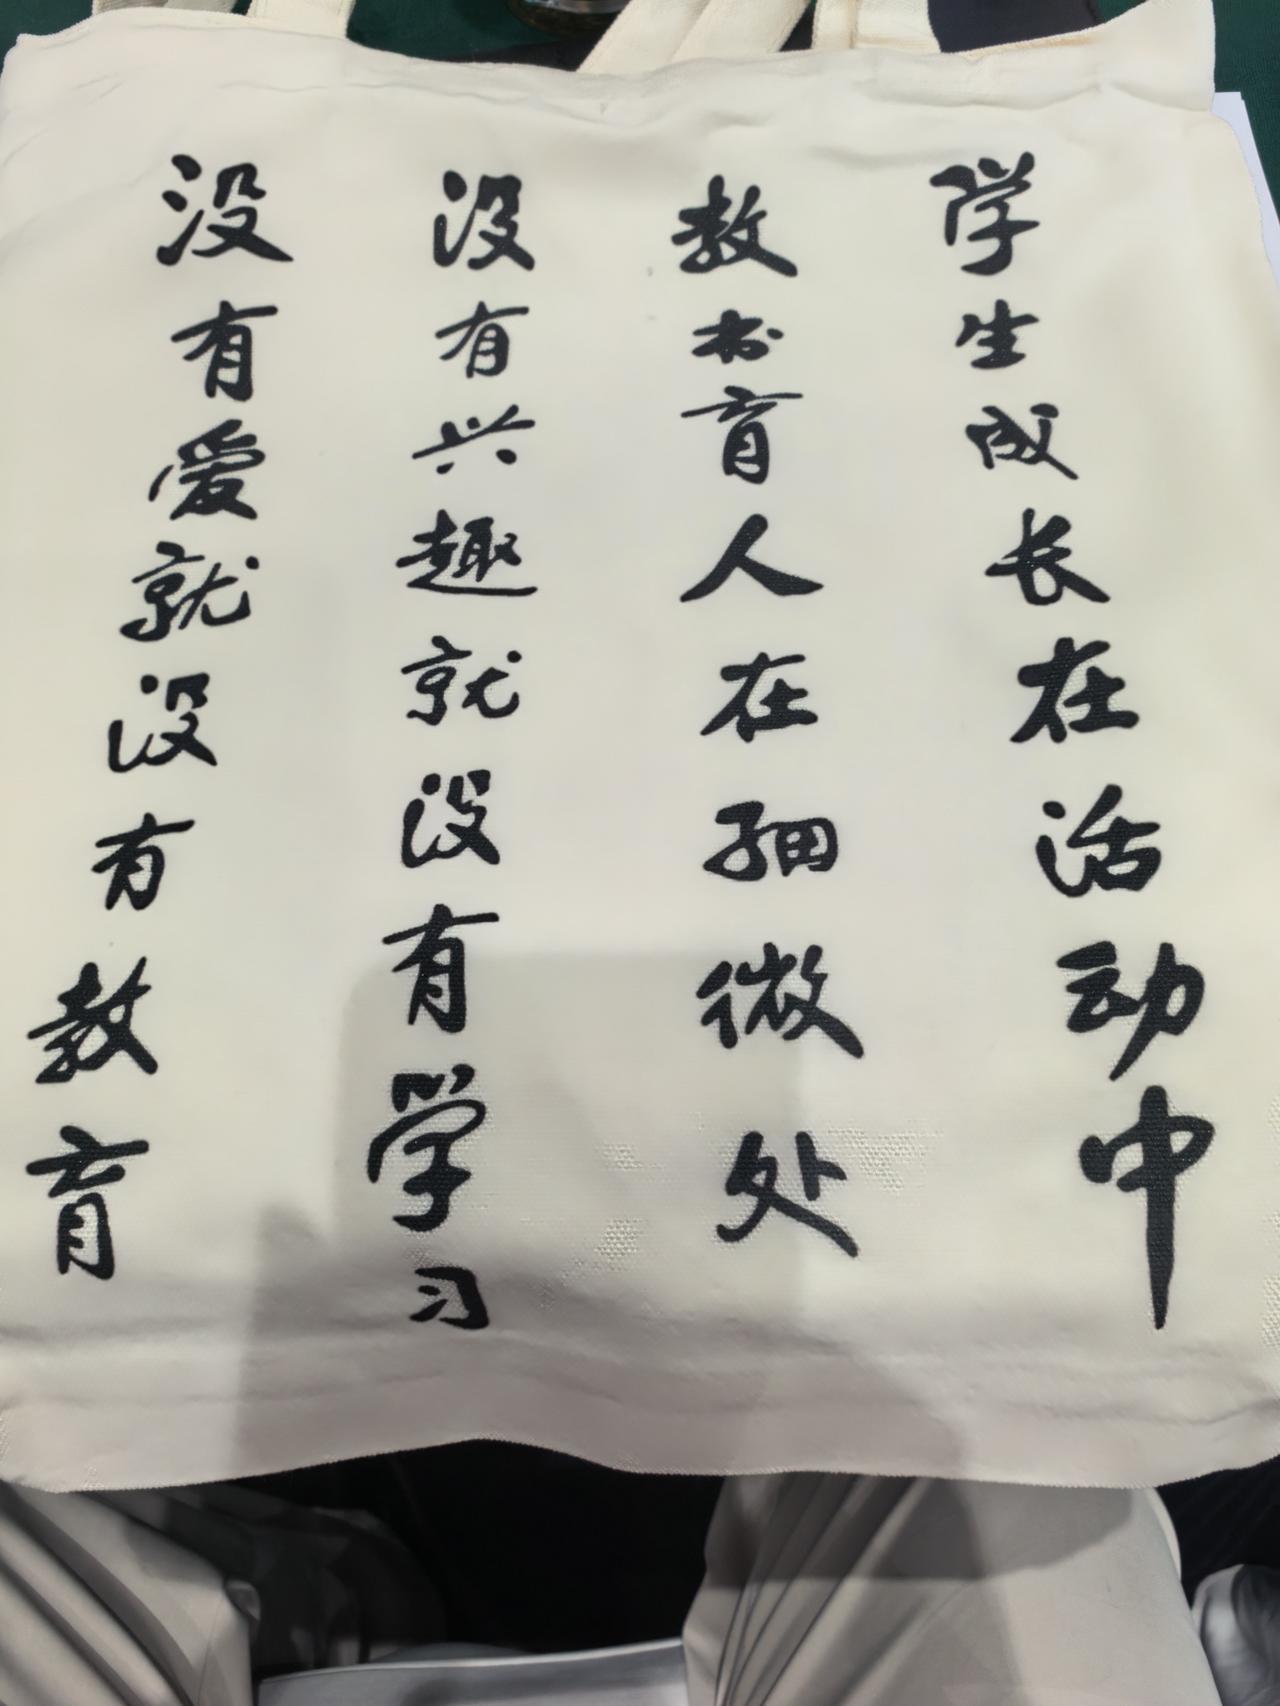 没有爱就没有教育
没有兴趣就没有学习
教书育人在细微处
学生成长在活动中